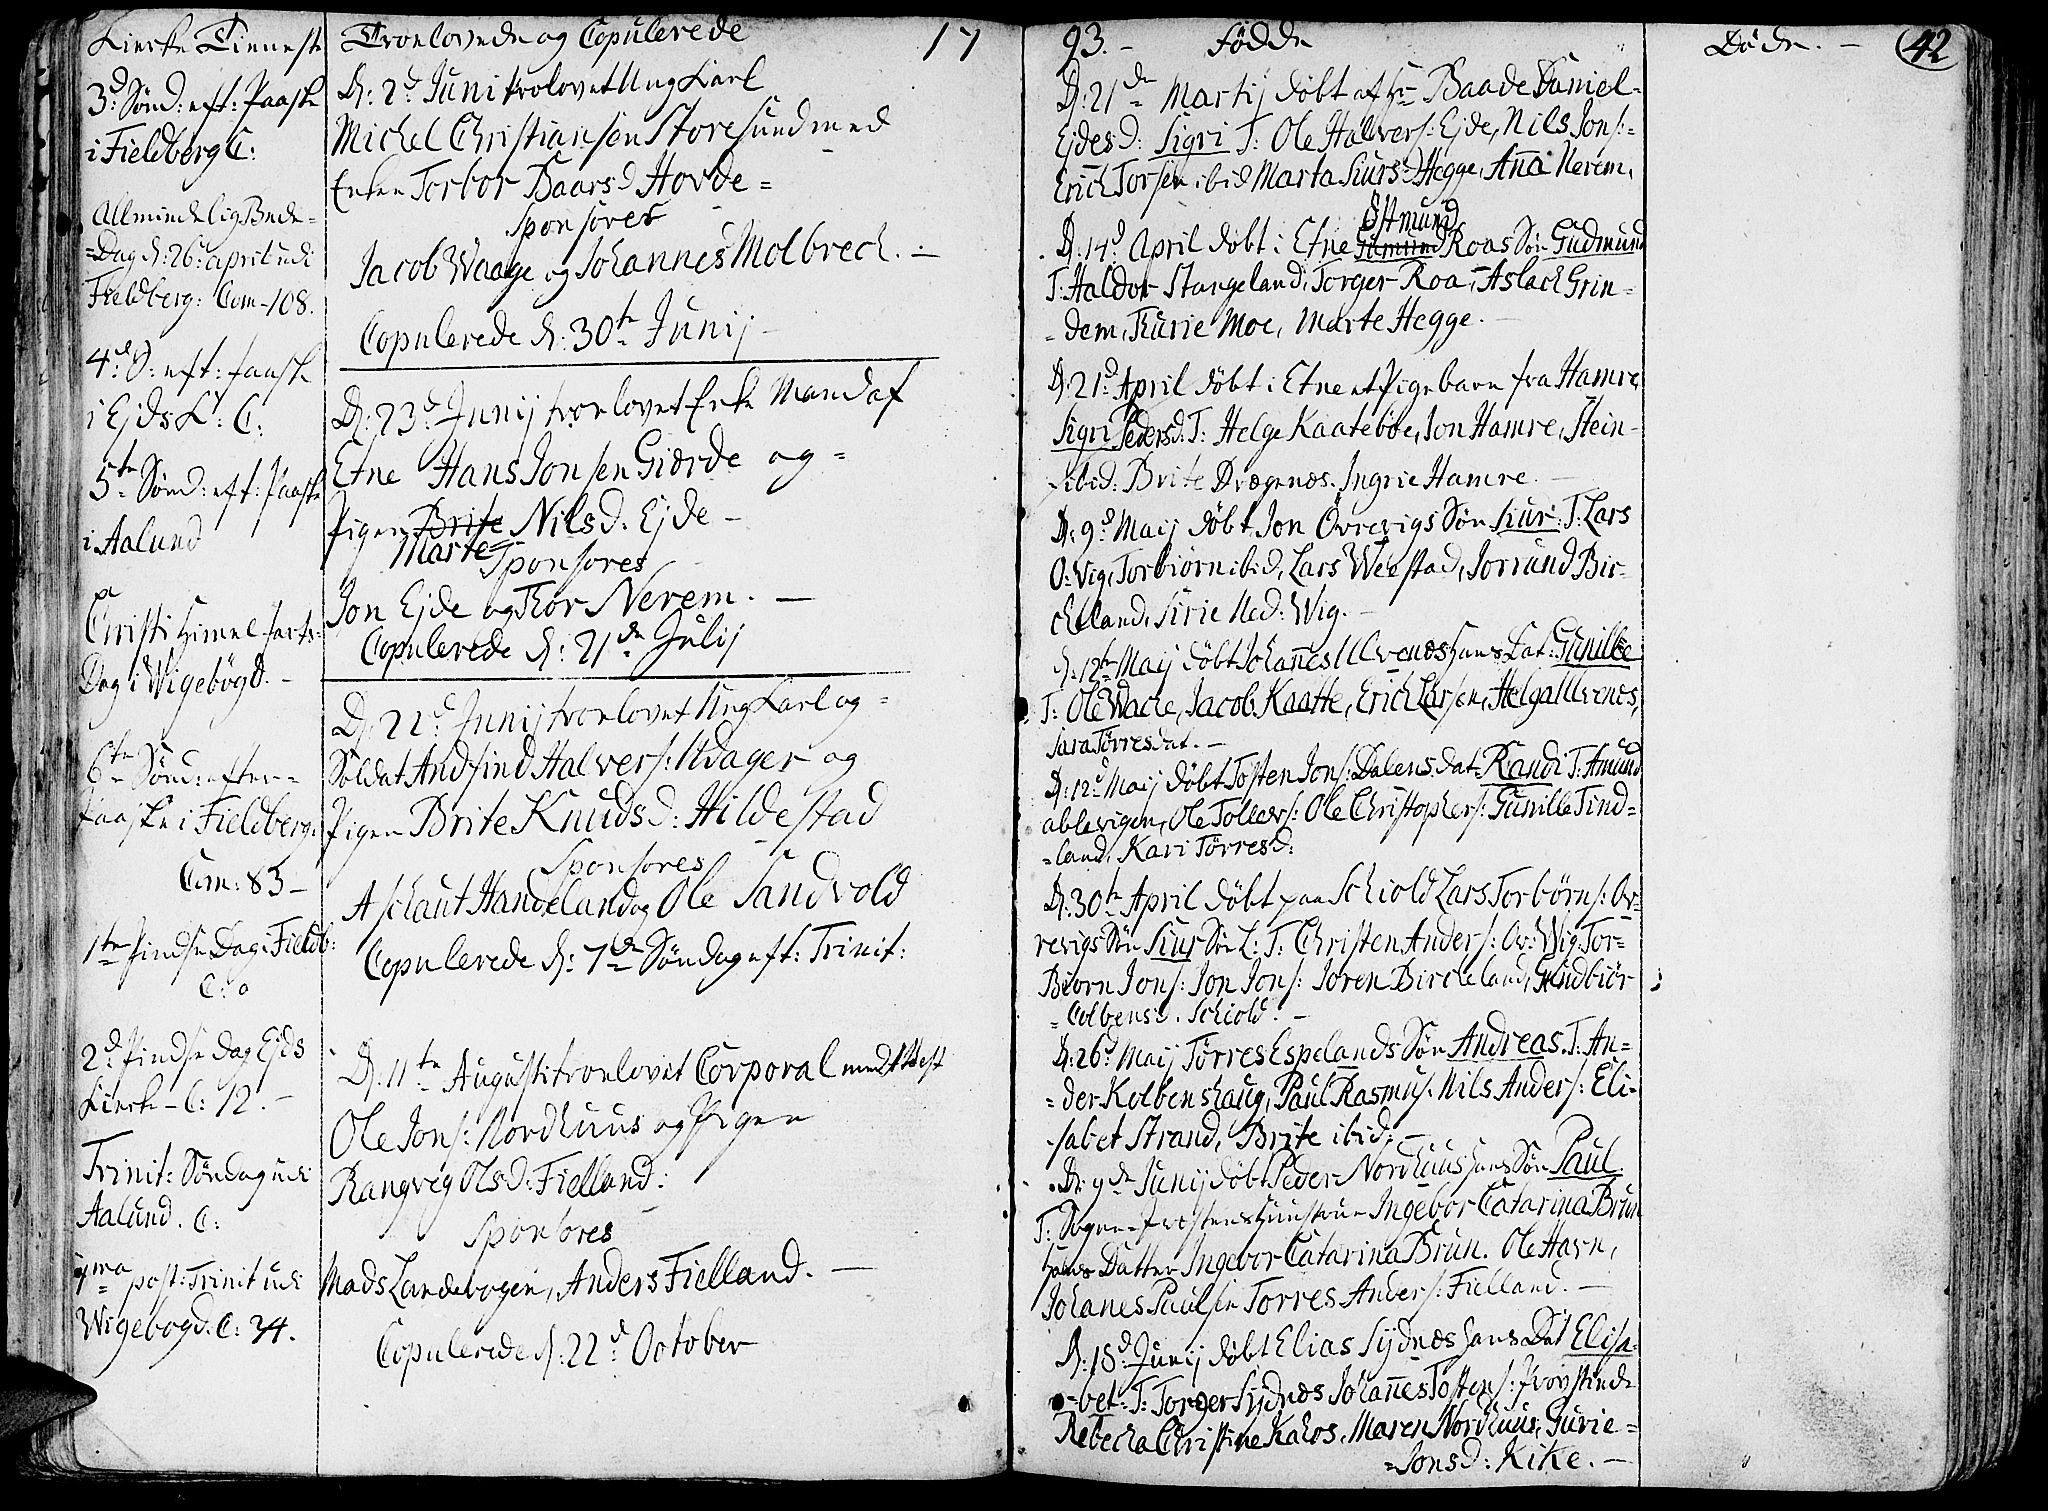 Kierke Tieneste
3d: Sønd: eft: Paaske
i Fieldberg C:
Allmindelig Bede=
=Dag d: 26: april udi
Fieldberg: Com-108.
4d S: eft: Paaske
i Ejds K: C:
5te Sønd: eft: Paaske
i Aalund
Christi Himel farts=
Dag i Wigebøgd. -
6te Sønd: efter=
Paaske i Fieldberg
Com: 83 -
1te Pindse Dag i Fieldb:
C: 0
2d: Pindse Dag Ejds
Kierke - C: 12. -
Trinit: Søndag udi
Aalund. C:
post: Trinit udi
Wigebogd. C: 34.
Troelovede og Copulerede 17
D: 2d: Juni trolovet Ung Karl
Michel Christiansen Storesund med
Enken Torbor Baarsd Hovde=
Sponsores
Jacob Waage og Johannes Molbrech. -
Copulerede d: 30te Junij -
D: 23d Junij troelovet Enke Mand af
Etne Hans Jonsen Giærde og=
Pigen Brite Nilsd. Ejde -
Marte Sponsores
Jon Ejde og Thor Nerem. -
Copulerede d: 21de Julij
D: 22d Junij troelovet Ung Karl og=
Soldat Andfind Halvers: Udager og
Pigen Brite Knudsd: Hildestad
Sponsores
Aschaut Handeland og Ole Sandvold
Copulerede d: 7de Søndag eft: Trinit:
D: 11te Augusti troelovet Corporal
Ole Jons: Nordhuus og Pigen
Rangveg Olsd: Fielland:
Sponsores
Mads Landebogen, Anders Fielland. -
Copulerede d: 22d October
93. - Fødde
D: 21de Martij døbt af Hr Baade Daniel=
Ejdes D: Sigri T: Ole Halvers: Ejde, Nils Jons:=
Erich Torsen ibid Marta Siursd: Hegge, Ana Nerem,
Østmund
D: 14d April døbt i Etne Roas Søn Gudmund
T: Haldor Stangeland, Torger Roa, Aslach Grin=
=dem, Thurie Moe, Marte Hegge. -
D: 21d April døbt i Etne et Pigebarn fra Hamre
Sigri Pedersd: T: Helge Kaatebøe, Jon Hamre, Stein
ibid: Brite Drægenæs. Ingrie Hamre. -
D: 9d Maij døbt Jon Ovrevigs Søn Siur: T: Lars
O: Vig, Torbiørn ibid, Lars Weestad, Jorrund Bir=
cheland, Sirie Ned: Wig. -
d: 12te Maij døbt Johañes Ulvenæs hans Dat: Gunille
T: Ole Wacre, Jacob Kaatte, Erich Larsen, Helga Ulvenes,
Sara Tørresdat. -
D: 12d Maij døbt Tosten Jons: Dalens Dat: Randi T: Amund
ablevigen, Ole Tollevs: Ole Christophers: Gunille Tind=
=land, Kari Tørresd:
D: 30te April døbt paa Schiold Lars Torbørns: Ov=
revigs Søn Siur Søn L: T: Christen Anders: Ov: Wig. Tor=
Biørn Jons: Jon Jons: Joren Bircheland, Gundbiør
=Colbensd. Schiold. -
D: 26d Maij Tørres Espelands Søn Andreas. T: An=
=der Kolbenshaug, Paul Rasmus: Nils Anders: Eli=
sabet Strand, Brite ibid. -
D: 9de Junij døbt Peder Nordhuus hans Søn Paul.
T: Sogne-Præstens Huustrue Ingebor Catarina Brun
hans Datter Ingebor Catarina Brun. Ole Havn,
Johanes Paulsen Torres Anders: Fielland. -
D: 18d: Junij døbt Elias Sydnæs hans Dat Elisa=
=bet. T: Torger Sydnæs Johañes Tostens: Provstinde
Rebecha Christine Kahos. Maren Nordhuus, Gurie=
=Jonsd: Kike. -
Døde. - 42